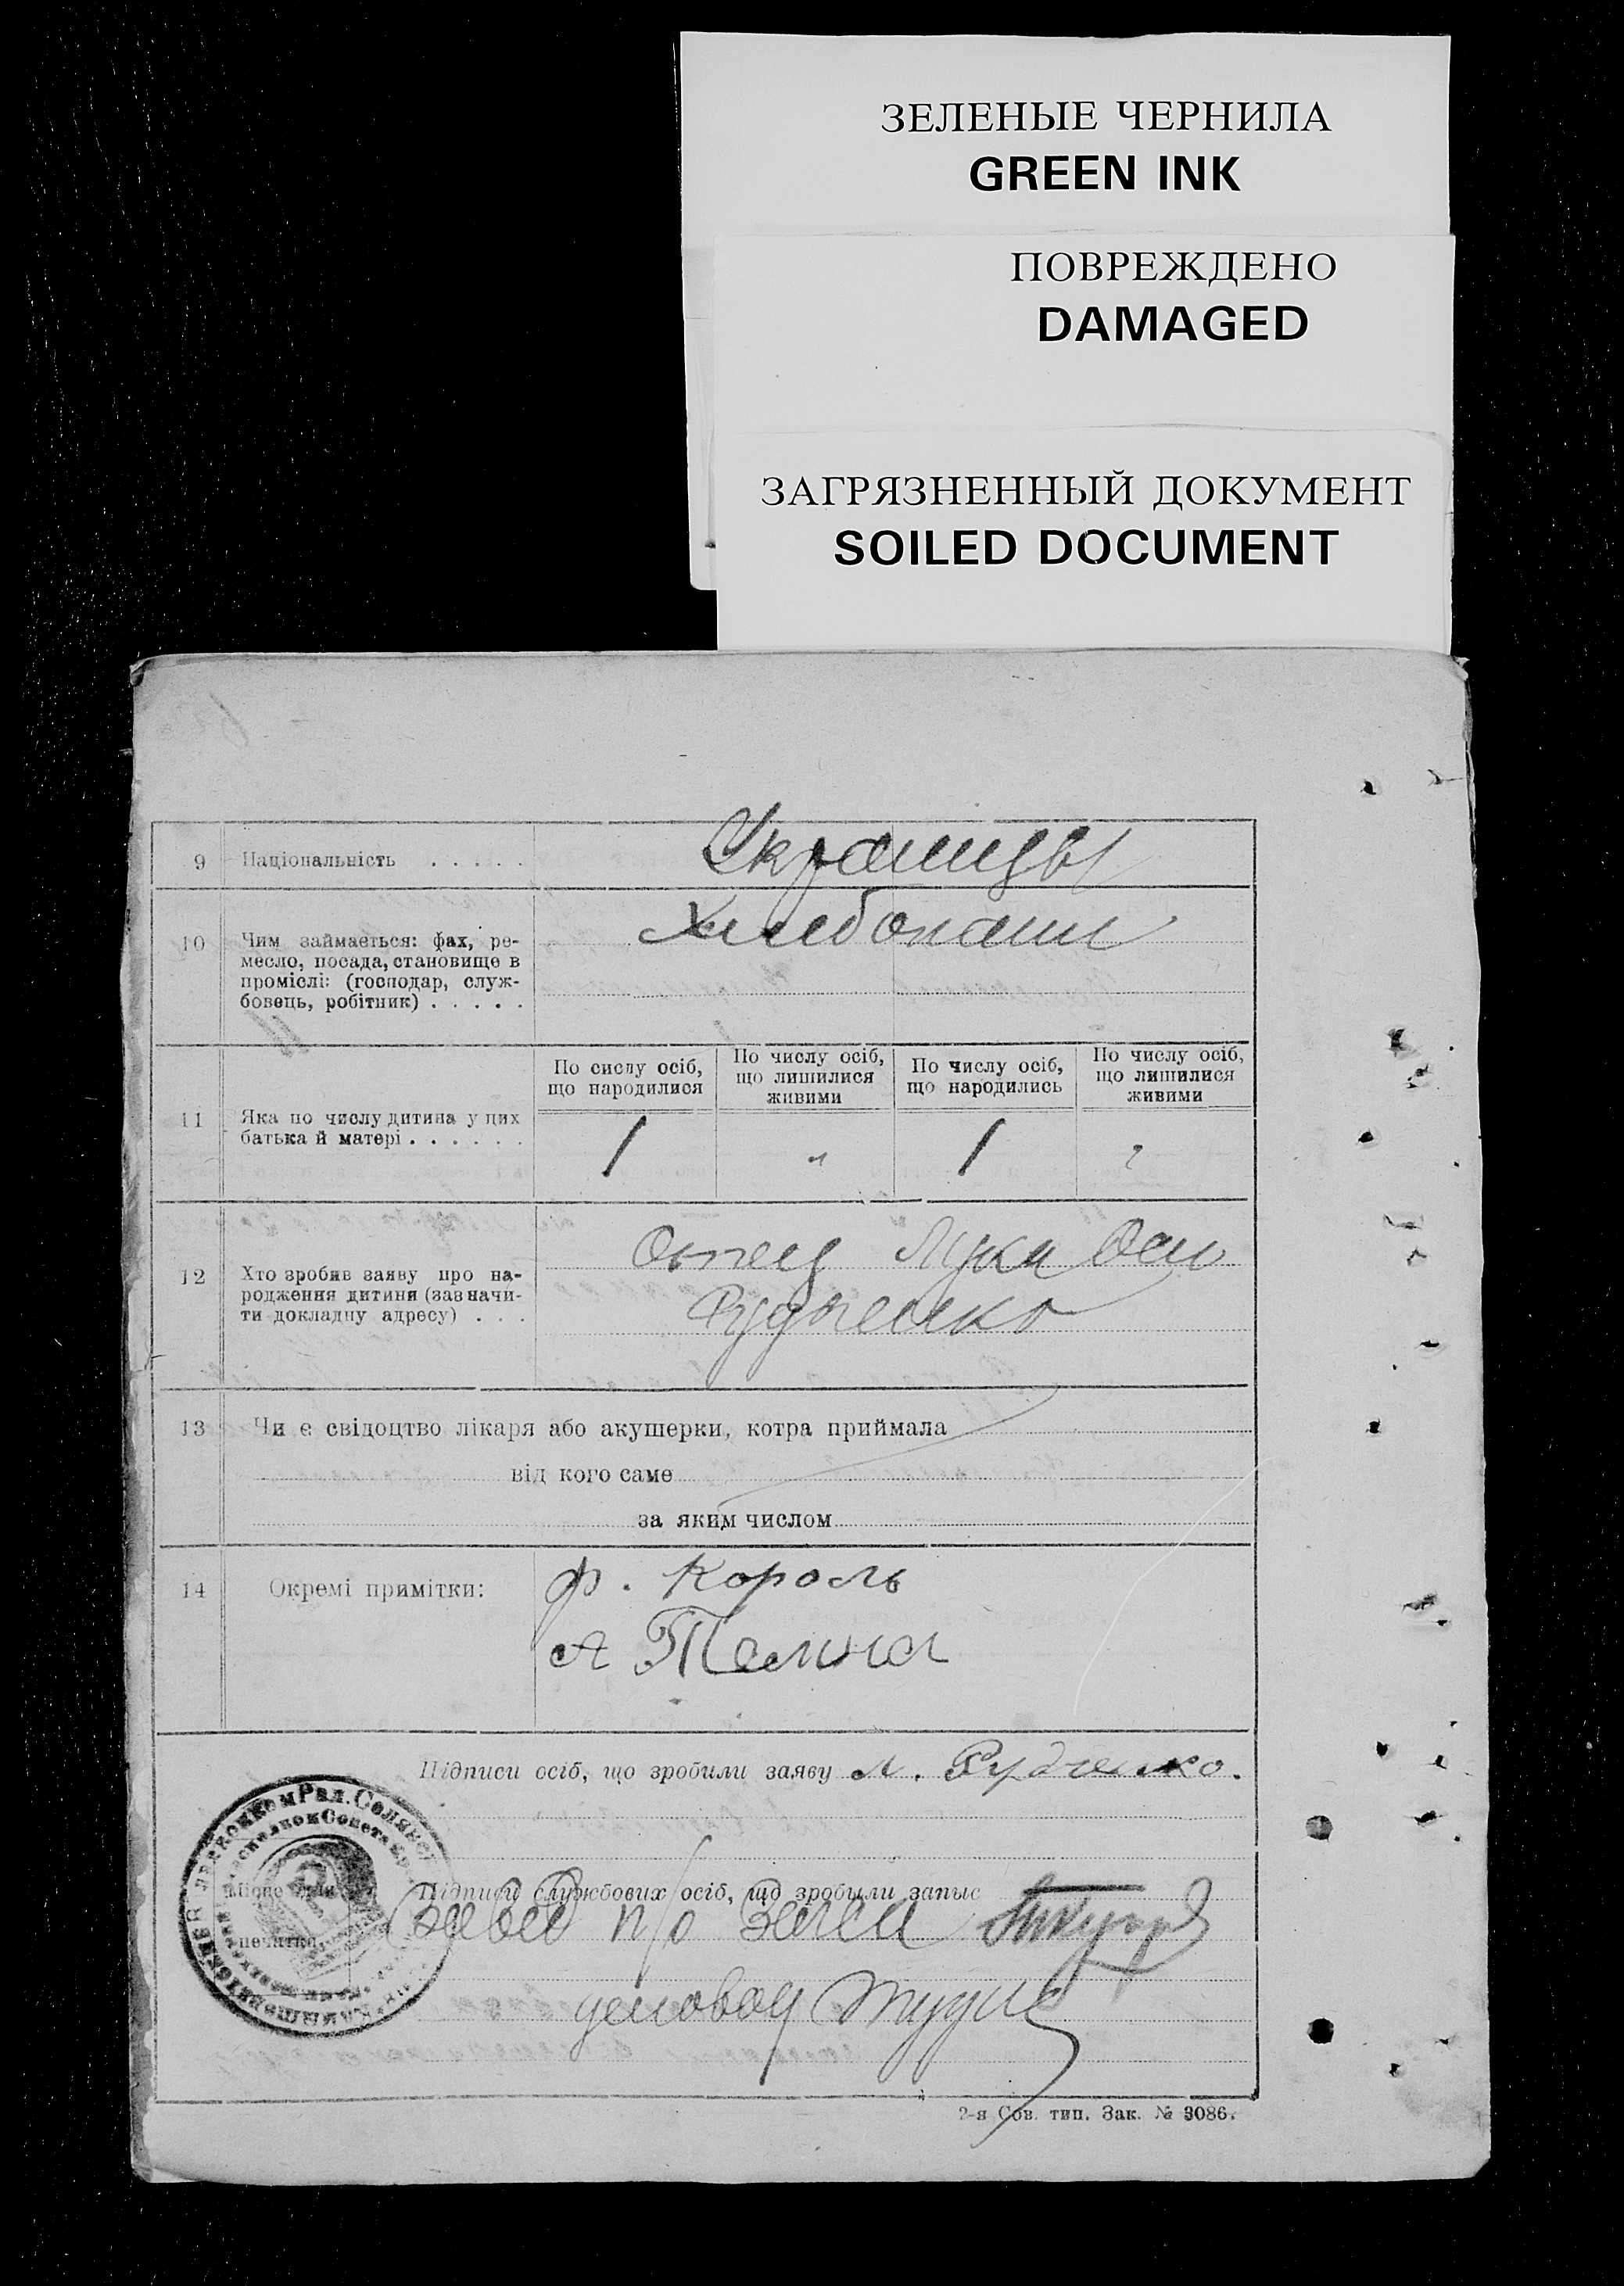 ЗЕЛЕНЫЕ ЧЕРНИЛА
GREEN INK
ПОВРЕЖДЕНО
DAMAGED
ЗАГРЯЗНЕННЫЙ ДОКУМЕНТ
SOILED DOCUMENT
9 Національність . . . . .
Украинцы
10 Чим займається: фах, ре-
месло, посада, становище в
промислі: (господар, служ-
бовець, робітник) . . . . .
Хлебопашц
11 Яка по числу дитина у цих
батька й матері . . . . . .
По сислу осіб,
що народилися
По числу осіб,
що лишилися
живими
По числу осіб,
що народились
По числу осіб,
що лишилися
живими
1 " 1
12 Хто зробив заяву про на-
родження дитини (зазначи-
ти докладну адресу) . . .
Отец Лука
Рудченко
13 Чи є свідоцтво лікаря або акушерки, котра приймала
від кого саме
за яким числом
14 Окремі примітки:
Ф. Король
А
Підписи осіб, що зробили заяву Л. Рудченко.
Підписи службових осіб, що зробили запис
Завед п/о Загса
печатки
2-я Сов. тип. Зак. № 3086.